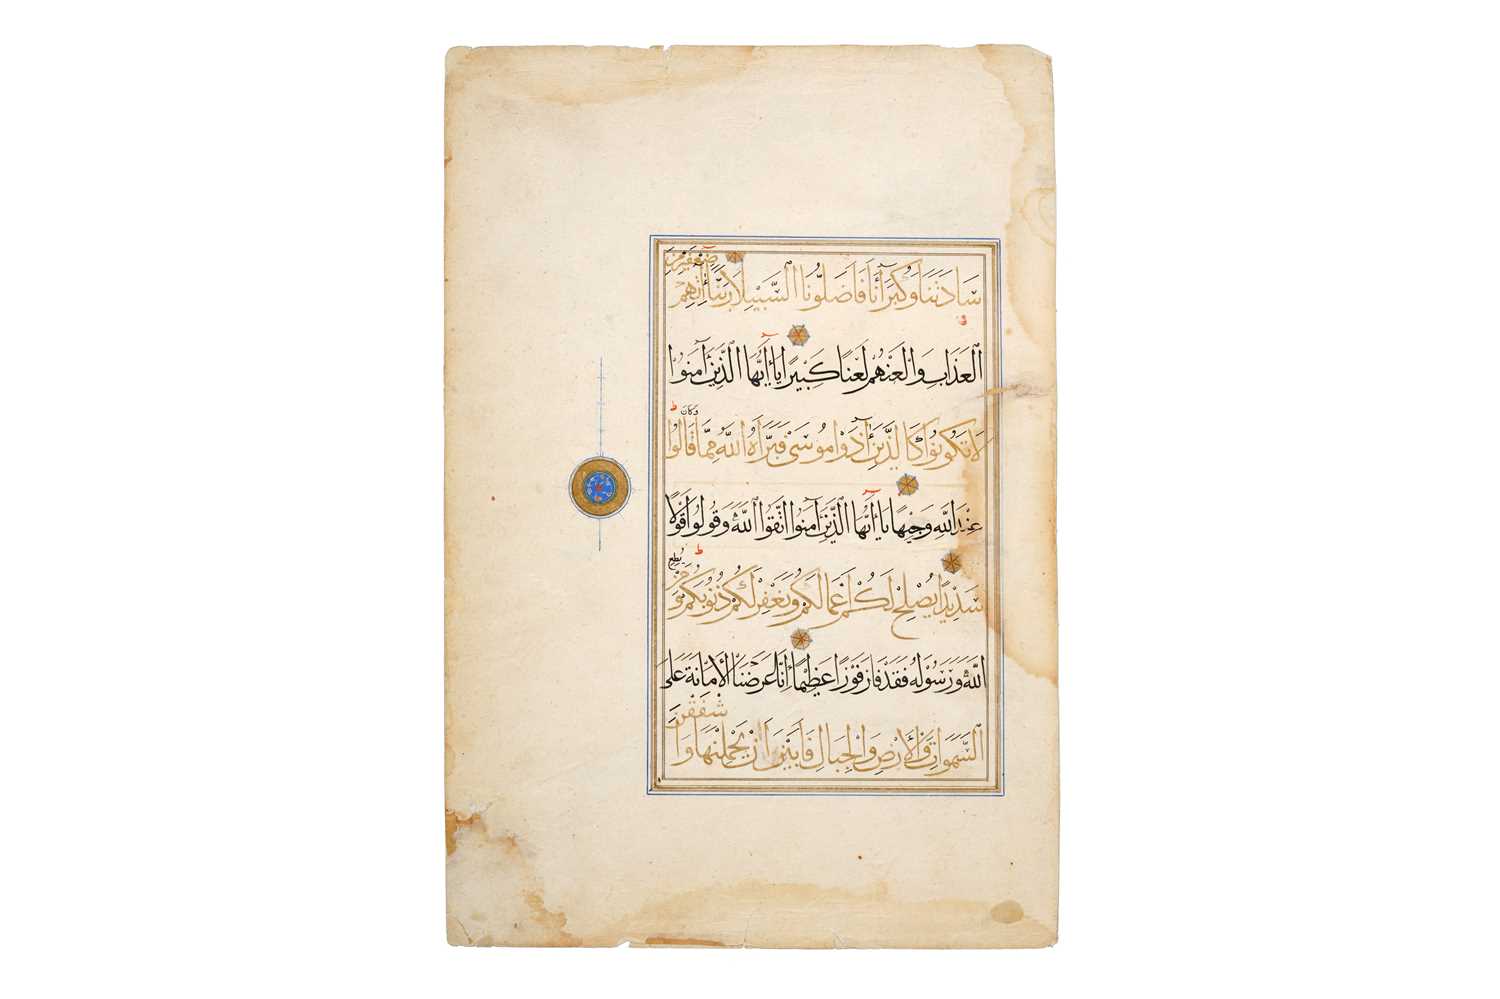 سَادَتَنَا وَكُبَرَآءَنَا فَأَضَلُّونَا السَّبِيلَا رَبَّنَآ آتِهِمْ ضِعْفَيْنِ مِنَ
الْعَذَابِ وَالْعَنْهُمْ لَعْنًا كَبِيرًا يَآ أَيُّهَا الَّذِينَ آمَنُوا
لَا تَكُونُوا كَالَّذِينَ آذَوْا مُوسَىٰ فَبَرَّأَهُ اللَّهُ مِمَّا قَالُوا وَكَانَ
عِنْدَ اللَّهِ وَجِيهًا يَآ أَيُّهَا الَّذِينَ آمَنُوا اتَّقُوا اللَّهَ وَقُولُوا قَوْلًا
سَدِيدًا يُصْلِحْ لَكُمْ أَعْمَالَكُمْ وَيَغْفِرْ لَكُمْ ذُنُوبَكُمْ وَمَنْ يُطِعِ
اللَّهَ وَرَسُولَهُ فَقَدْ فَازَ فَوْزًا عَظِيمًا إِنَّا عَرَضْنَا الْأَمَانَةَ عَلَى
السَّمٰوَاتِ وَالْأَرْضِ وَالْجِبَالِ فَأَبَيْنَ أَنْ يَحْمِلْنَهَا وَأَشْفَقْنَ